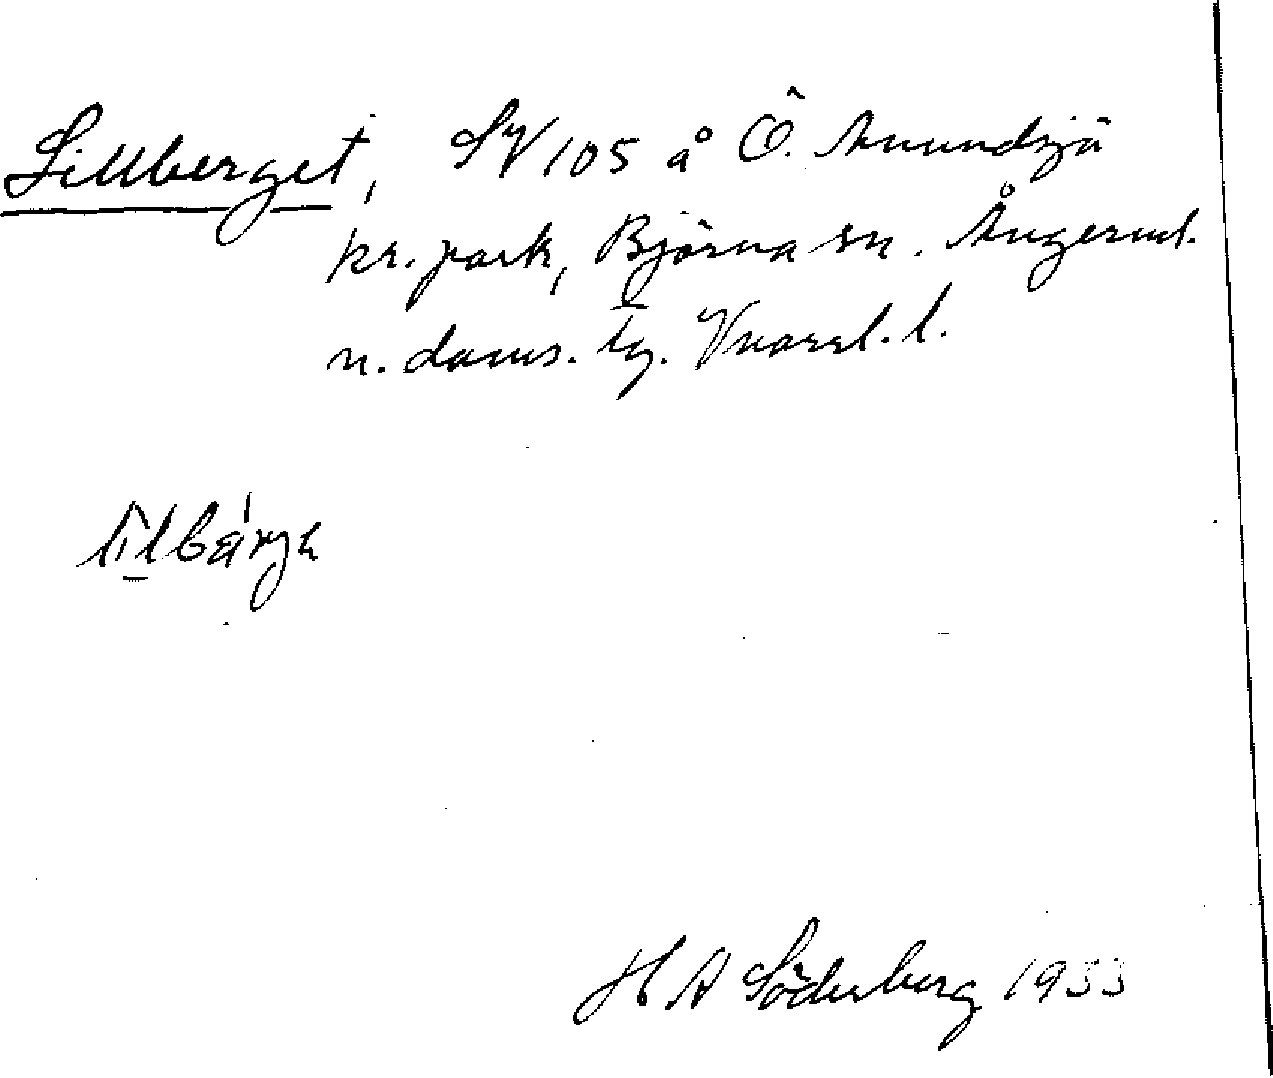 Lillberget, SV 105 å Ö. Anundsjö
kr. park, Björna sn. Ångerml.
n. doms. tg. Vnorrl. l.
H A Söderberg 1933